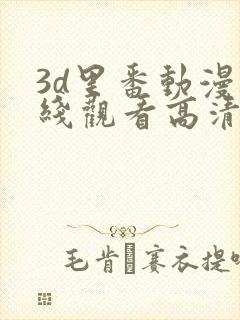 3d里番動漫
綫觀看高清
毛肯 賽衣提